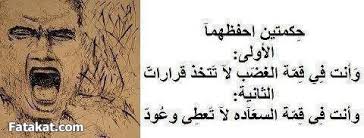 حِكمتين احفظهمآ
الأولى:
وَأنت فِي قِمّة الغضَب لآ تَتخذ قراراتَ
الثانية:
وَأنت فِي قمة السعَآده لآ تَعطي وعُودَ
Fatakat.com